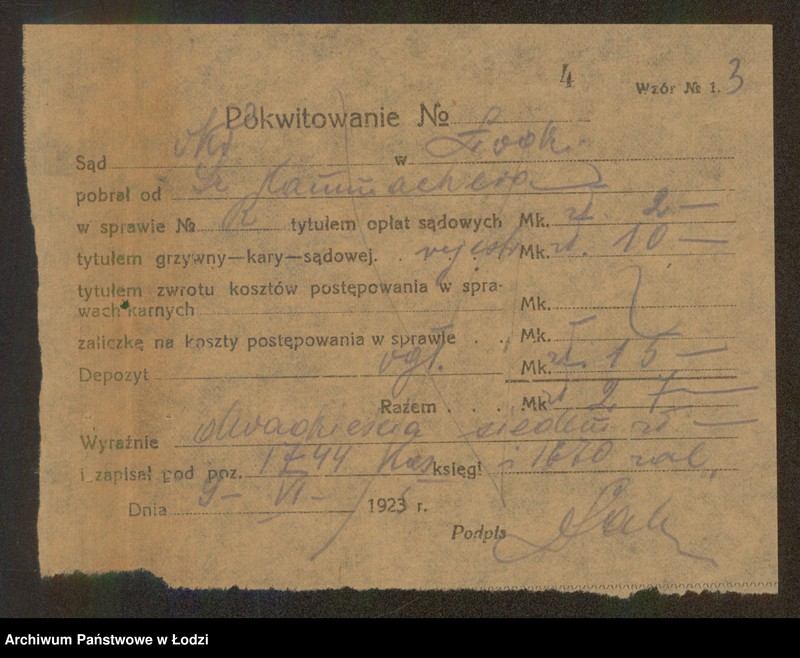 4
Wzór № 1. 3
Pokwitowanie №
Sąd w
pobrał od
w sprawie № tytułem opłat sądowych Mk. zł. 2 —
tytułem grzywny—kary—sądowej. . rejestr. Mk. zł. 10 —
tytułem zwrotu kosztów postępowania w spra-
wach karnych Mk.
zaliczkę na koszty postępowania w sprawie . . Mk.
Depozyt ogł. Mk. zł. 15 —
Razem . . . . Mk zł 27 —
Wyraźnie dwadzieścia siedem zł —
i zapisał pod poz. 1744 Kas księgi i 1670 zal.
Dnia 9 — VI — 1923 r.
Podpis
Archiwum Państwowe w Łodzi